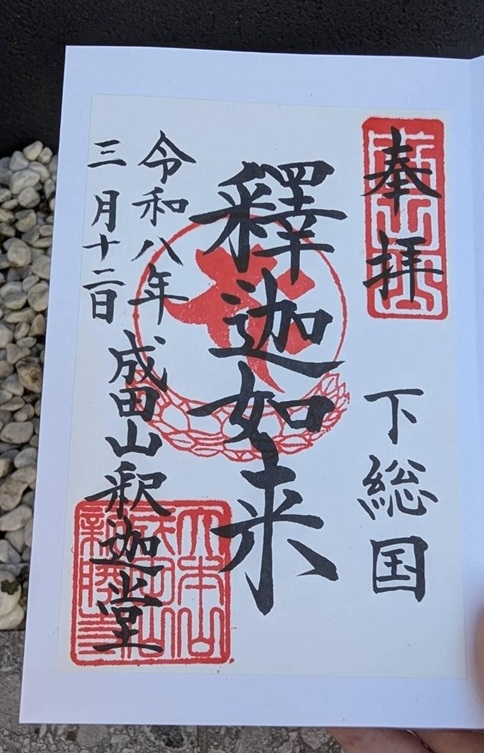 奉拝
下総国
釋迦如来
令和八年
三月十二日
成田山釈迦堂